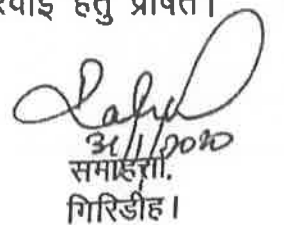 रवाई हेतु प्रेषित।
31/1/2020
समाहर्त्ता.
गिरिडीह।